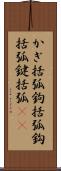 かぎ括弧鉤括弧鈎
括弧鍵括弧